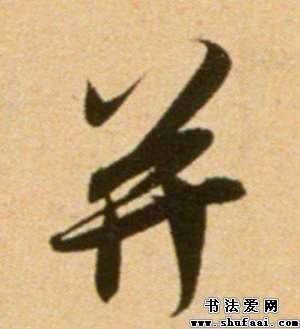 并
书法爱网
www.shufaai.com